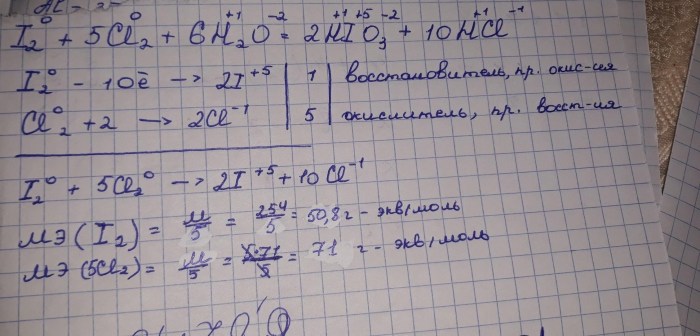 I₂⁰ + 5Cl₂⁰ + 6H₂⁺¹O⁻² = 2H⁺¹I⁺⁵O₃⁻² + 10H⁺¹Cl⁻¹
I₂⁰ - 10ē → 2I⁺⁵ | 1 | восстановитель, пр. окис-ия
Cl₂⁰ + 2 → 2Cl⁻¹ | 5 | окислитель, пр. восст-ия
I₂⁰ + 5Cl₂⁰ → 2I⁺⁵ + 10Cl⁻¹
МЭ (I₂) = M/5 = 254/5 = 50,8 г - экв/моль
МЭ (5Cl₂) = M/5 = 5·71/5 = 71 г - экв/моль